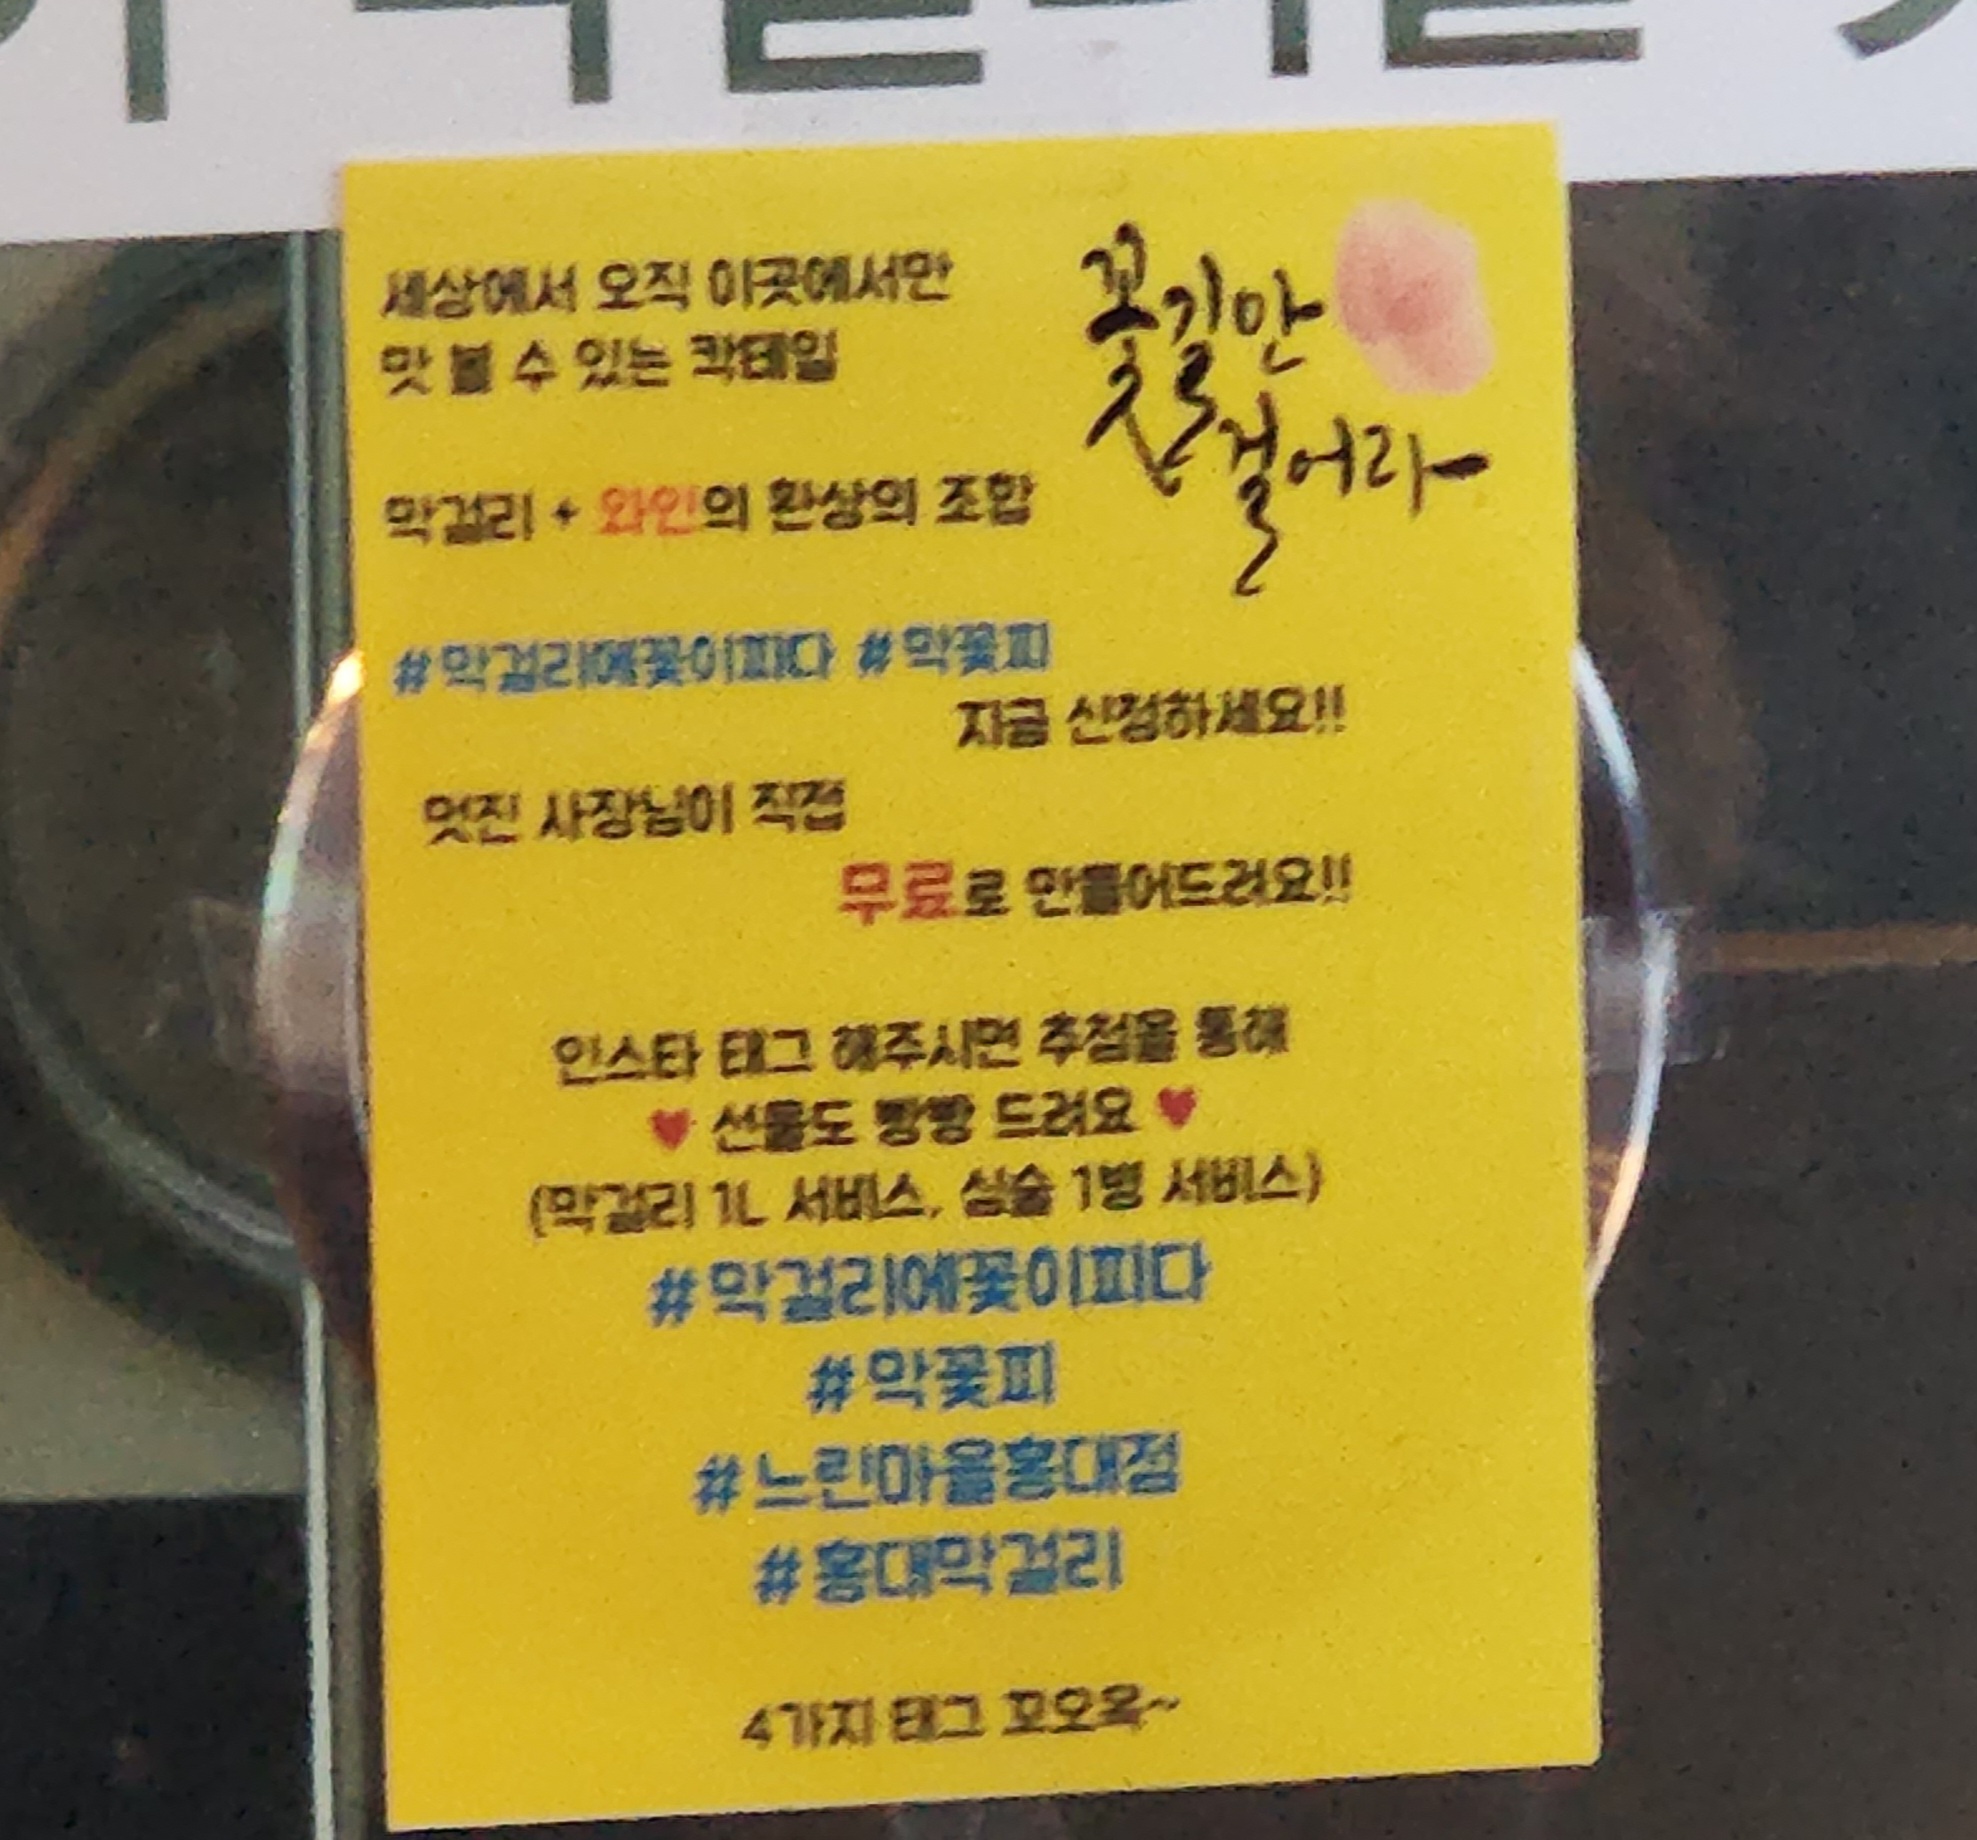 세상에서 오직 이곳에서만
맛 볼 수 있는 칵테일
꽃길만
걸어라
막걸리 + 와인의 환상의 조합
#막걸리에꽃이피다 #막꽃피
지금 신청하세요!!
멋진 사장님이 직접
무료로 만들어드려요!!
인스타 태그 해주시면 추첨을 통해
♥ 선물도 빵빵 드려요 ♥
(막걸리 1L 서비스, 심술 1병 서비스)
#막걸리에꽃이피다
#막꽃피
#느린마을홍대점
#홍대막걸리
4가지 태그 꼬오옥~